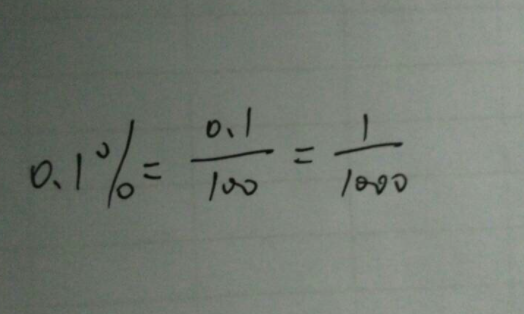 0.1% = 0.1/100 = 1/1000